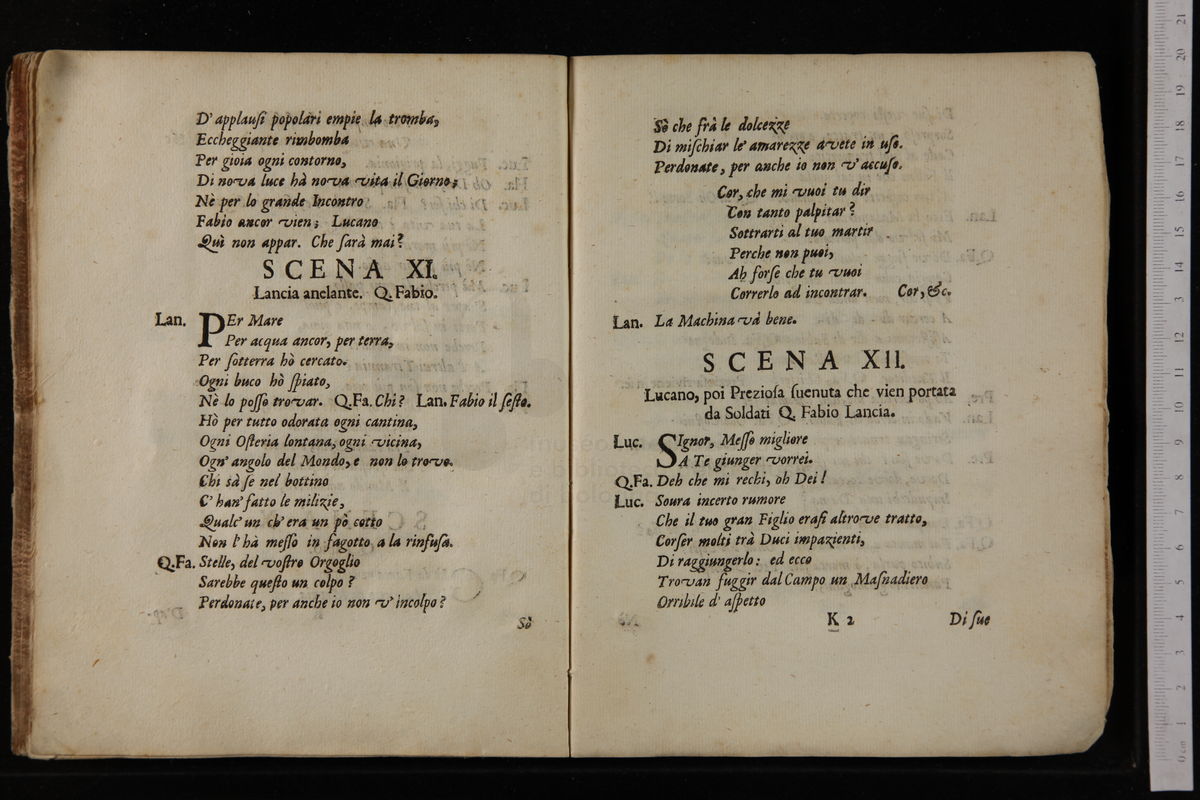 D' applauſi popolari empie la tromba,
Eccheggiante rimbomba
Per gioia ogni contorno,
Di nova luce hà nova vita il Giorno;
Nè per lo grande Incontro
Fabio ancor vien; Lucano
Quì non appar. Che ſarà mai?
SCENA XI.
Lancia anelante. Q. Fabio.
Lan. PEr Mare
Per acqua ancor, per terra,
Per ſotterra hò cercato.
Ogni buco hò ſpiato,
Nè lo poſſo trovar. Q.Fa. Chi? Lan. Fabio il ſeſto.
Hò per tutto odorata ogni cantina,
Ogni Oſteria lontana, ogni vicina,
Ogn' angolo del Mondo, e non lo trovo.
Chi sà ſe nel bottino
C' han' fatto le milizie,
Qualc' un ch' era un pò cotto
Non l' hà meſſo in fagotto a la rinfuſa.
Q.Fa. Stelle, del voſtro Orgoglio
Sarebbe queſto un colpo?
Perdonate, per anche io non v' incolpo?
Sò
Sò che frà le dolcezze
Di miſchiar le' amarezze avete in uſo.
Perdonate, per anche io non v' accuſo.
Cor, che mi vuoi tu dir
Con tanto palpitar?
Sottrarti al tuo martir
Perche non puoi,
Ah forſe che tu vuoi
Correrlo ad incontrar. Cor, &c.
Lan. La Machina và bene.
SCENA XII.
Lucano, poi Prezioſa ſuenuta che vien portata
da Soldati Q. Fabio Lancia.
Luc. SIgnor, Meſſo migliore
A Te giunger vorrei.
Q.Fa. Deh che mi rechi, oh Dei!
Luc. Soura incerto rumore
Che il tuo gran Figlio eraſi altrove tratto,
Corſer molti trà Duci impazienti,
Di raggiungerlo: ed ecco
Trovan fuggir dal Campo un Maſnadiero
Orribile d' aſpetto
K 2 Di ſue
0 cm 1 2 3 4 5 6 7 8 9 10 11 12 13 14 15 16 17 18 19 20 21